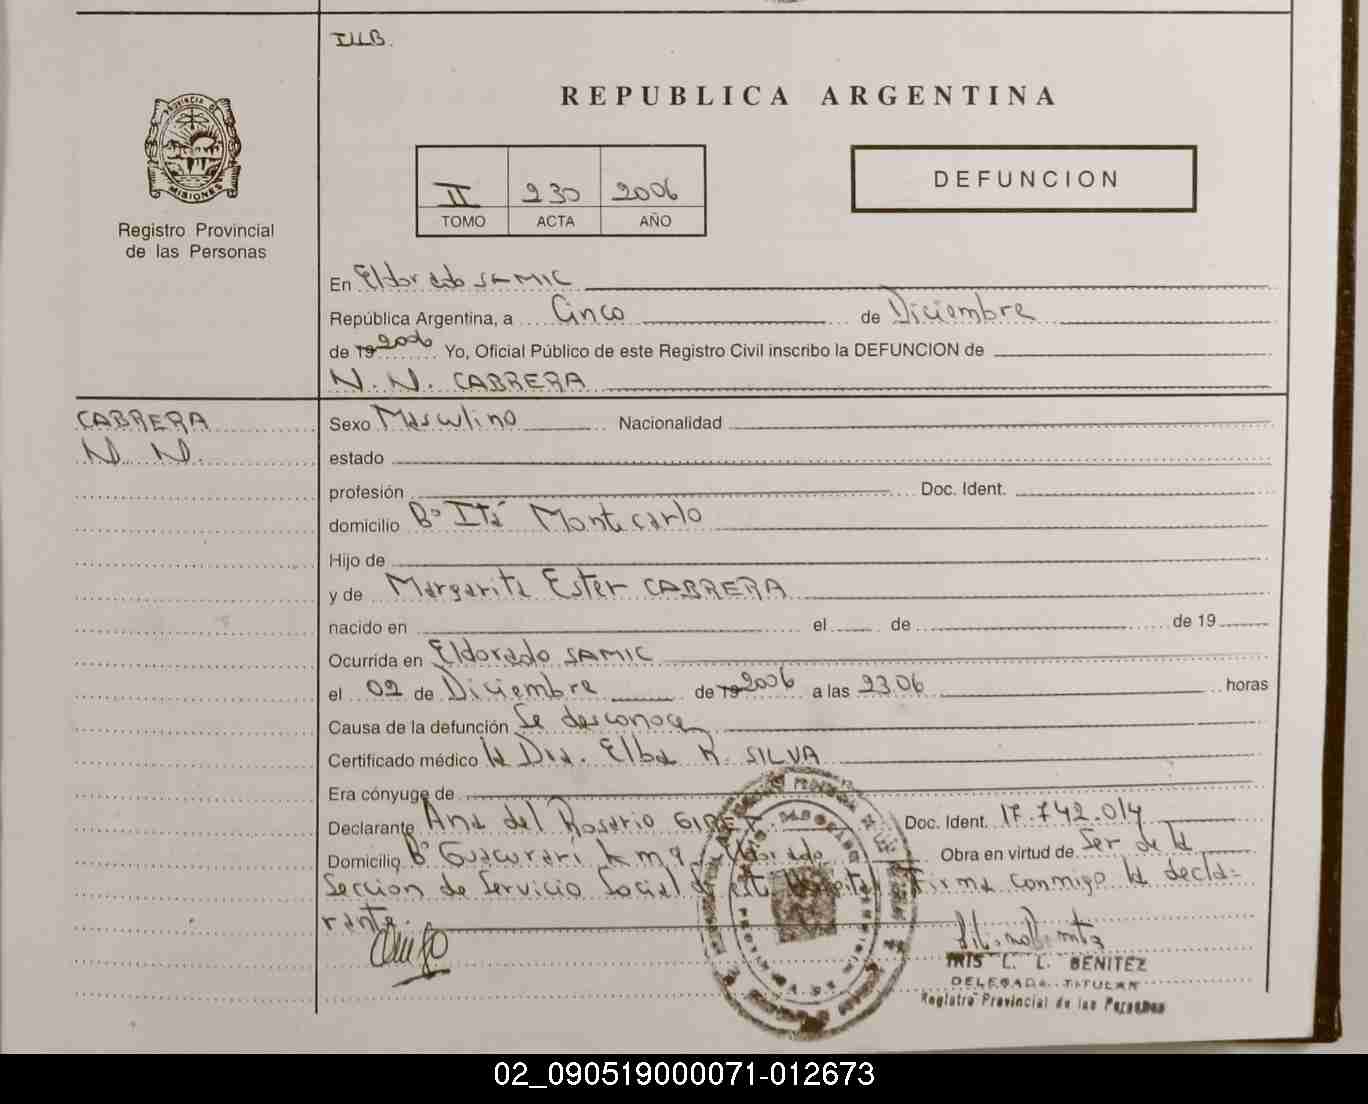 ILLB.
REPUBLICA ARGENTINA
PROVINCIA DE
MISIONES
Registro Provincial
de las Personas
II 230 2006
TOMO ACTA AÑO
DEFUNCION
En Eldorado SAMIC
República Argentina, a Cinco de Diciembre
de 19 2006 Yo, Oficial Público de este Registro Civil inscribo la DEFUNCION de
N. N. CABRERA
CABRERA
N. N.
Sexo Masculino Nacionalidad
estado
profesión Doc. Ident.
domicilio Bº Itá Montecarlo
Hijo de
y de Margarita Ester CABRERA
nacido en el de de 19
Ocurrida en Eldorado SAMIC
el 02 de Diciembre de 19 2006 a las 23.06 horas
Causa de la defunción Se desconoce
Certificado médico la Dra. Elba R. SILVA
Era cónyuge de
Declarante Ana del Rosario Doc. Ident. 17.742.014
Domicilio Bº Guacurarí km 9, Eldorado Obra en virtud de Ser de la
Seccion de Servicio Social de este Hospital Firma conmigo la decla=
rante.
IRIS L. L. BENITEZ
DELEGADA TITULAR
Registro Provincial de las Personas
02_090519000071-012673